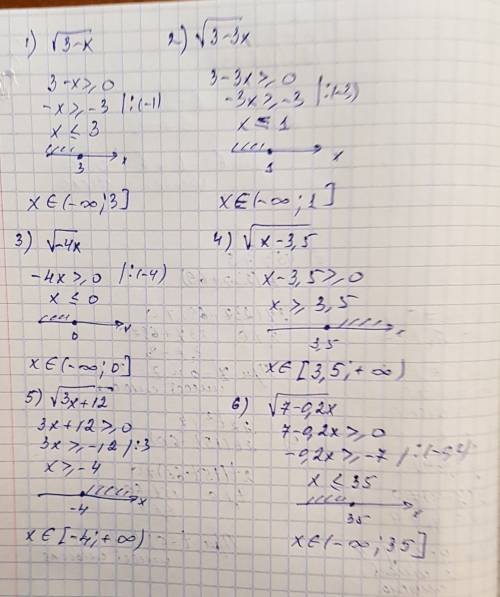 1) √3-x
3-x ⩾ 0
-x ⩾ -3 |:(-1)
x ≤ 3
3 x
x ∈ (-∞; 3]
2) √3-3x
3-3x ⩾ 0
-3x ⩾ -3 |:(-3)
x ≤ 1
1 x
x ∈ (-∞; 1]
3) √-4x
-4x ⩾ 0 |:(-4)
x ≤ 0
0 x
x ∈ (-∞; 0]
4) √x-3,5
x-3,5 ⩾ 0
x ⩾ 3,5
3,5 x
x ∈ [3,5; +∞)
5) √3x+12
3x+12 ⩾ 0
3x ⩾ -12 |:3
x ⩾ -4
-4 x
x ∈ [-4; +∞)
6) √7-0,2x
7-0,2x ⩾ 0
-0,2x ⩾ -7
x ≤ 35
35 x
x ∈ (-∞; 35]